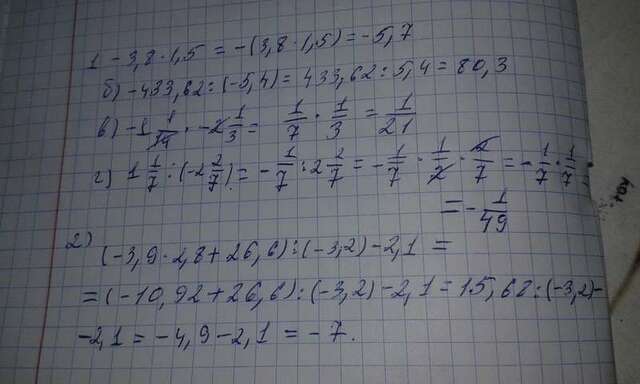 1 -3,8·1,5 = -(3,8·1,5) = -5,7
б) -433,62:(-5,4) = 433,62:5,4 = 80,3
в) -1 1/14 · -2 1/3 = 1/7 · 1/3 = 1/21
г) 1 1/7 :(-2 2/7) = -1/7 : 2 2/7 = -1/7 · 1/2 · 2/7 = -1/7 · 1/7 =
= -1/49
2) (-3,9·2,8+26,6):(-3,2)-2,1 =
=(-10,92+26,6):(-3,2)-2,1=15,68:(-3,2)-
-2,1 = -4,9-2,1 = -7.